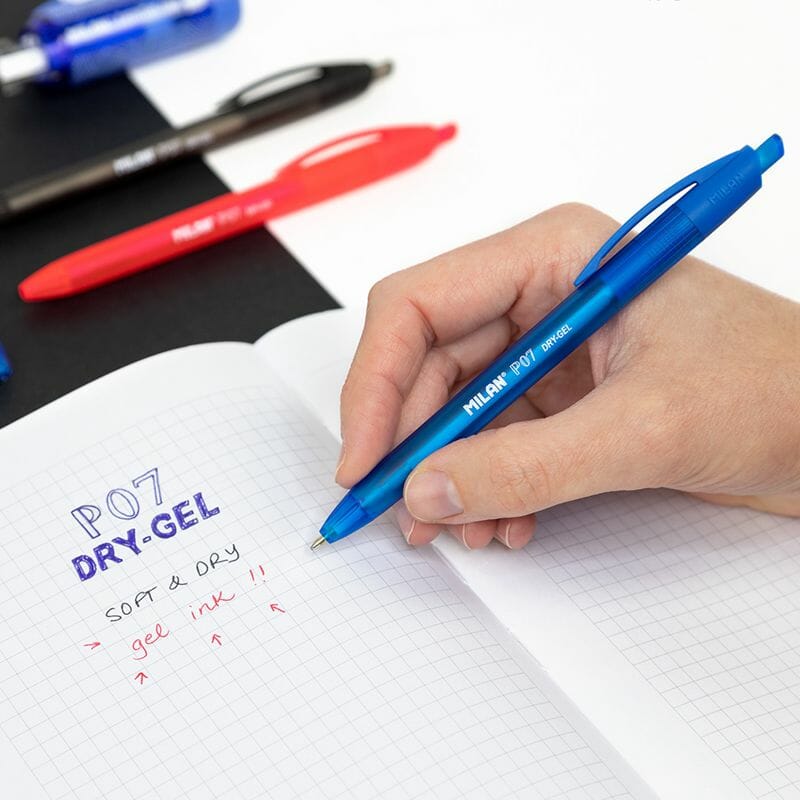 MILAN
MILAN® P07 DRY-GEL
MILAN P07
MILAN P07
P07
DRY-GEL
SOFT & DRY
gel ink !!